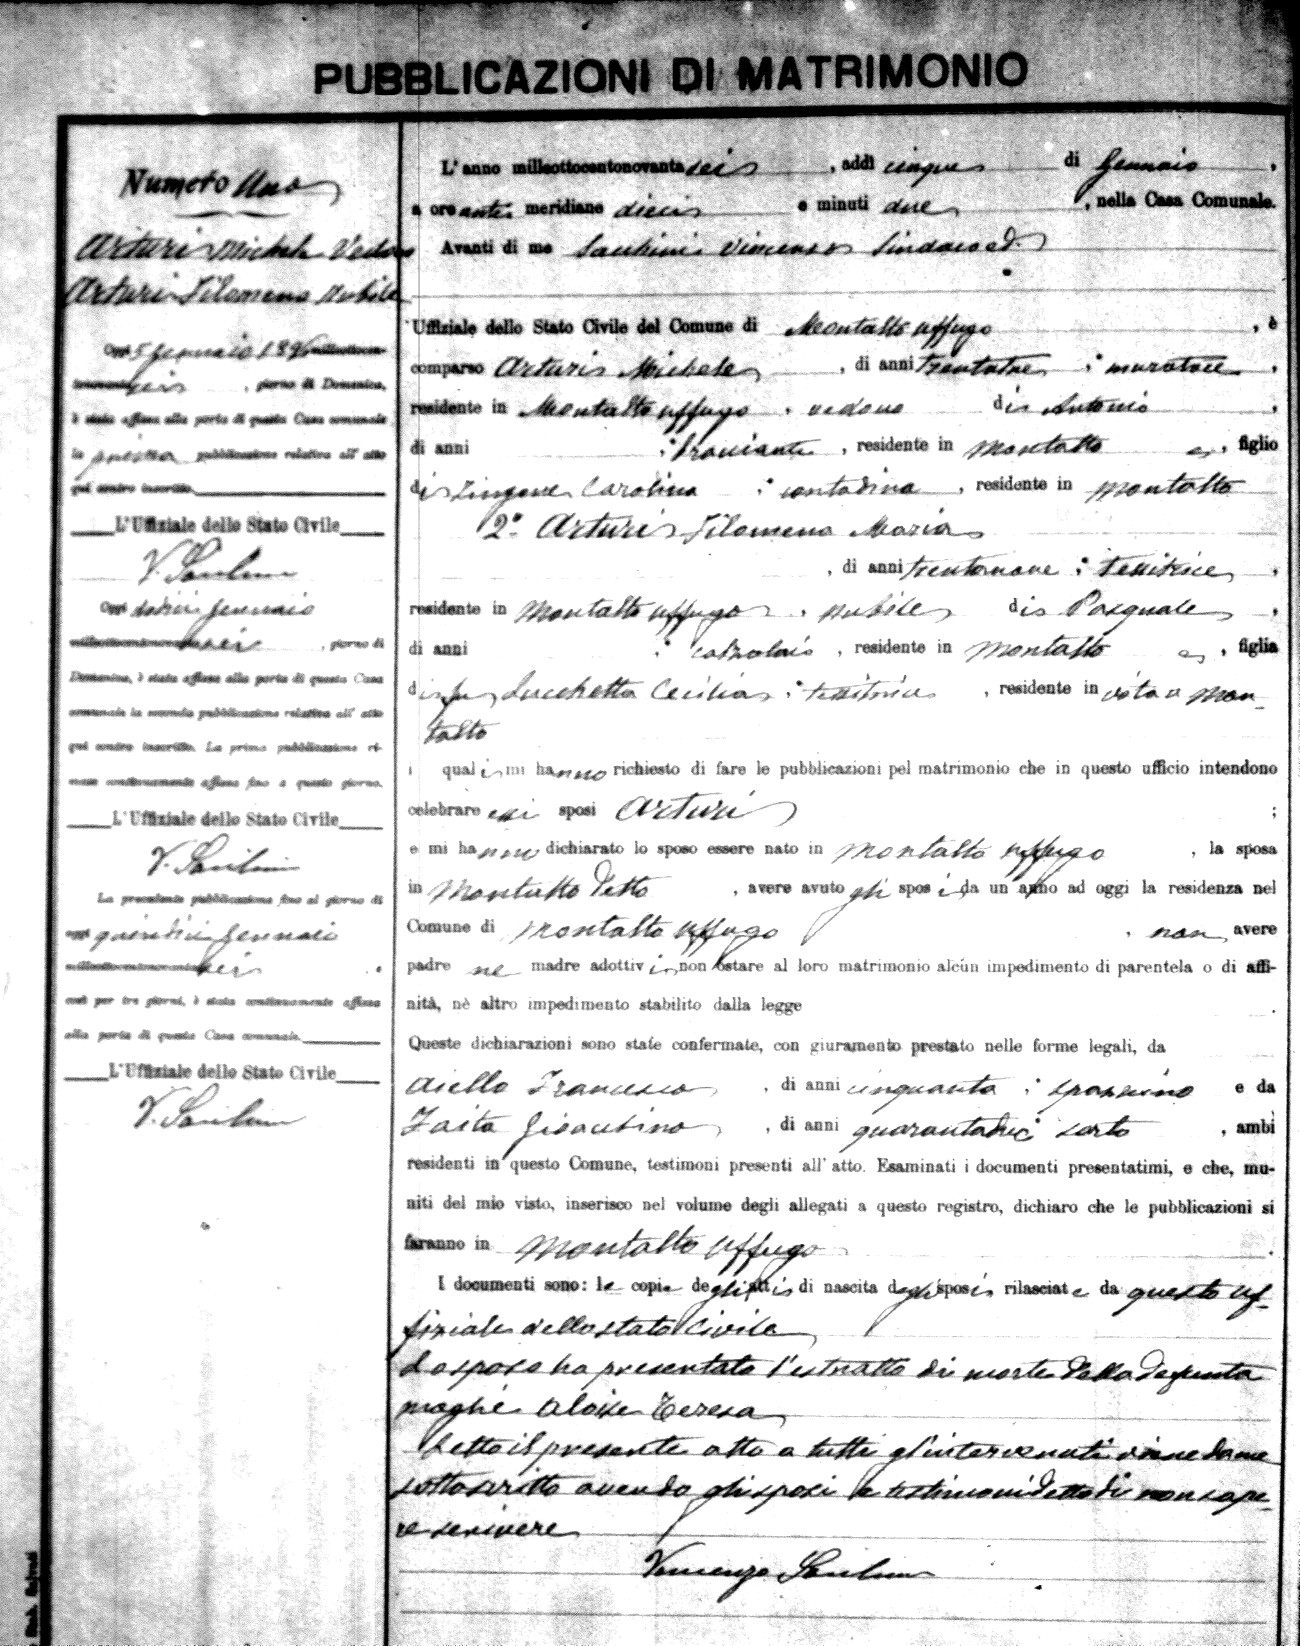 PUBBLICAZIONI DI MATRIMONIO
Numero Uno
Arturi Michele Vedovo
Arturi Filomena Nubile
Oggi 5 Gennaio 1896 millottocen-
tonovanta sei, giorno di Domenica,
è stata affissa alla porta di questa Casa comunale
la prima pubblicazione relativa all' atto
qui contro inscritto.
L'Uffiziale dello Stato Civile
V.
Oggi dodici Gennaio
millottocentonovanta sei, giorno di
Domenica, è stata affissa alla porta di questa Casa
comunale la seconda pubblicazione relativa all' atto
qui contro inscritto. La prima pubblicazione ri-
mase continuamente affissa fino a questo giorno.
L'Uffiziale dello Stato Civile
V.
La precedente pubblicazione fino al giorno di
oggi quindici Gennaio
millottocentonovanta sei
cioè per tre giorni, è stata continuamente affissa
alla porta di questa Casa comunale.
L'Uffiziale dello Stato Civile
V.
L'anno milleottocentonovanta sei, addì cinque di Gennaio,
a ore anti meridiane dieci e minuti due, nella Casa Comunale.
Avanti di me Vincenzo Sindaco ed
Uffiziale dello Stato Civile del Comune di Montalto Uffugo, è
comparso Arturi Michele, di anni trentatre, muratore,
residente in Montalto Uffugo, vedovo di Antonio,
di anni , bracciante, residente in Montalto, figlio
di Zingone Carolina, contadina, residente in Montalto
2° Arturi Filomena Maria
, di anni trentanove, tessitrice,
residente in Montalto Uffugo, nubile di Pasquale,
di anni , calzolaio, residente in Montalto, figlia
di fu Lucchetta Cecilia, tessitrice, residente in vita a Mon-
talto
i quali mi hanno richiesto di fare le pubblicazioni pel matrimonio che in questo ufficio intendono
celebrare essi sposi Arturi ;
e mi hanno dichiarato lo sposo essere nato in Montalto Uffugo, la sposa
in Montalto detto, avere avuto gli sposi da un anno ad oggi la residenza nel
Comune di Montalto Uffugo, non avere
padre ne madre adottivi, non ostare al loro matrimonio alcun impedimento di parentela o di affi-
nità, nè altro impedimento stabilito dalla legge.
Queste dichiarazioni sono state confermate, con giuramento prestato nelle forme legali, da
Aiello Francesco, di anni cinquanta, spazzino e da
Zaita Gioacchino, di anni quarantadue, sarto, ambi
residenti in questo Comune, testimoni presenti all' atto. Esaminati i documenti presentatimi, e che, mu-
niti del mio visto, inserisco nel volume degli allegati a questo registro, dichiaro che le pubblicazioni si
faranno in Montalto Uffugo.
I documenti sono: le copie degli atti di nascita degli sposi rilasciate da questo uf-
fiziale dello stato civile
Lo sposo ha presentato l'estratto di morte della defunta
moglie Aloise Teresa
Letto il presente atto a tutti gl'intervenuti viene da me
sottoscritto avendo gli sposi e testimoni detto di non sape-
re scrivere
Vincenzo